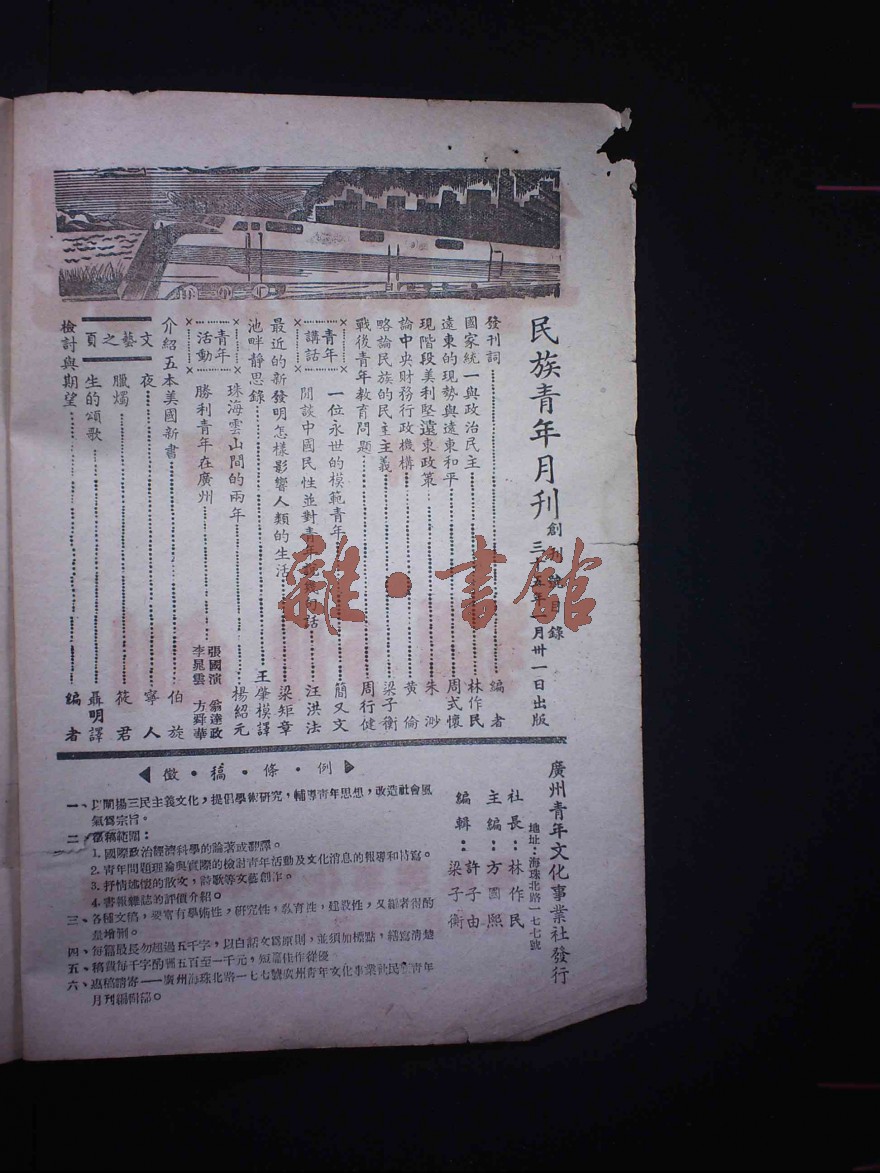 民族青年月刊 創刊號目錄
三十五年一月卅一日出版
發刊詞 編者
國家統一與政治民主 林作民
遠東的現勢與遠東和平 周式懷
現階段美利堅遠東政策 朱渺
論中央財務行政機構 黃倫
略論民族的民主主義 梁子衡
戰後青年教育問題 周行健
青年講話
一位永世的模範青年 簡又文
閒談中國民性並對青年說幾句話 汪洪法
最近的新發明怎樣影響人類的生活 梁矩章
池畔靜思錄 王肇模譯
青年活動
珠海雲山間的兩年 楊紹元
勝利青年在廣州 張國演 翁達政 李晁雲 方舜華
介紹五本美國新書 伯旋
文藝之頁
夜 寧人
臘燭 筱君
生的頌歌 聶明譯
檢討與期望 編者
廣州青年文化事業社發行
地址：海珠北路一七七號
社長：林作民
主編：方國熙 許子由
編輯：梁子衡
徵・稿・條・例
一、以闡揚三民主義文化，提倡學術研究，輔導青年思想，改造社會風
氣爲宗旨。
二、徵稿範圍：
1. 國際政治經濟科學的論著或翻譯。
2. 青年問題理論與實際的檢討青年活動及文化消息的報導和特寫。
3. 抒情述懷的散文，詩歌等文藝創作。
4. 書報雜誌的評價介紹。
三、各種文稿，要富有學術性，研究性，教育性，建設性，又編者得酌
量增刪。
四、每篇最長勿超過五千字，以白話文爲原則，並須加標點，繕寫清楚
五、稿費每千字酌酬五百至一千元，短篇佳作從優
六、惠稿請寄——廣州海珠北路一七七號廣州青年文化事業社民族青年
月刊編輯部。
雜・書館